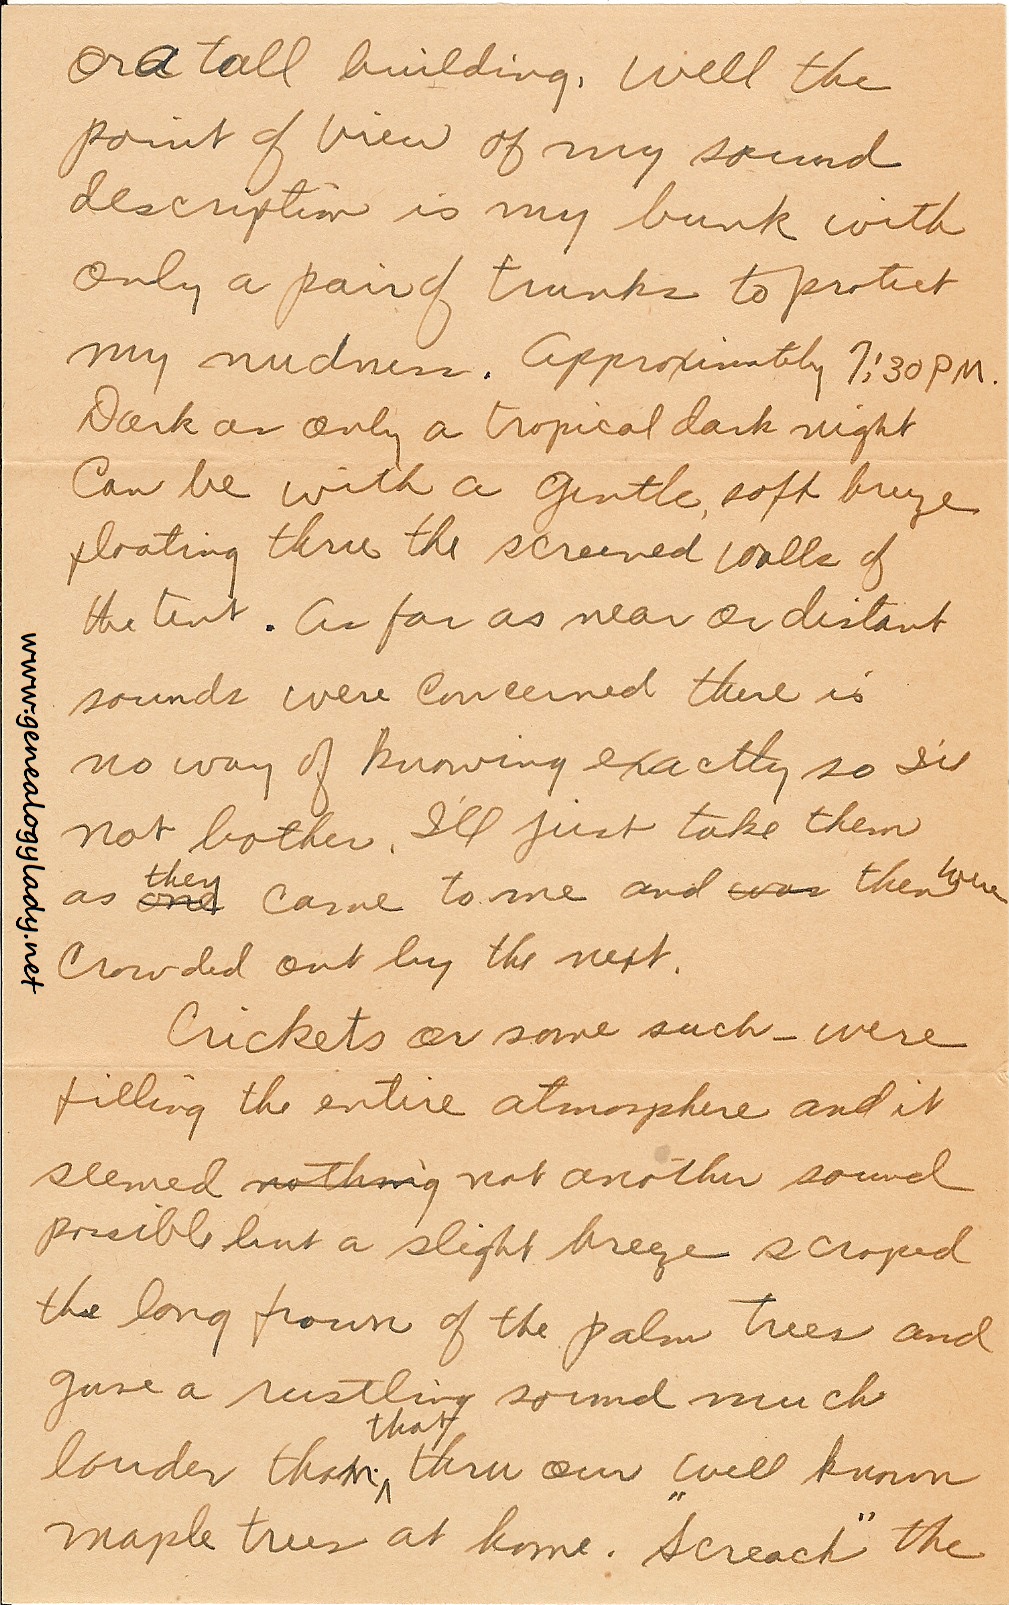 or a tall building. Well the
point of view of my sound
description is my bunk with
only a pair of trunks to protect
my nudness. Approximately 7:30 PM.
Dark as only a tropical dark night
Can be with a gentle, soft breeze
floating thru the screened walls of
the tent. As far as near or distant
sounds were concerned there is
no way of knowing exactly so I'll
not bother. I'll just take them
as ~~one~~ they came to me and ~~was~~ then were
Crowded out by the next.
Crickets or some such - were
filling the entire atmosphere and it
seemed ~~nothing~~ not another sound
possible but a slight breeze scraped
the long frown of the palm trees and
gave a rustling sound much
louder than that thru our well known
maple trees at home. "Screach" the
www.genealogylady.net